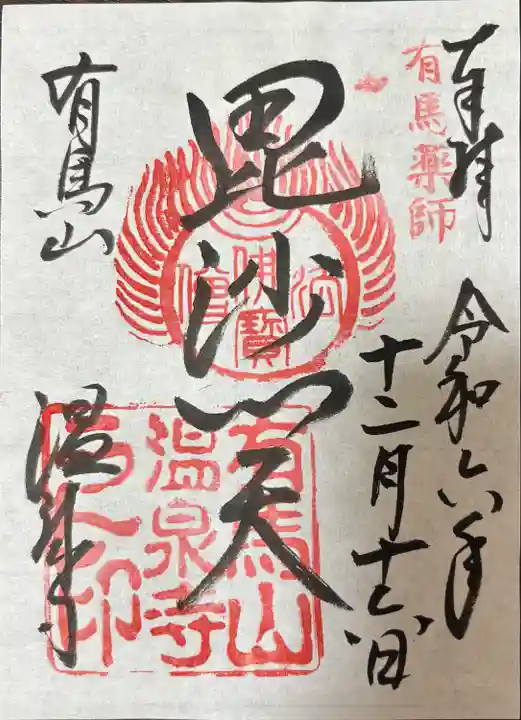 奉拝
有馬薬師
令和六年
十二月十七日
毘沙門天
佛法僧寶
有馬山
温泉寺
有馬山
温泉寺
之印